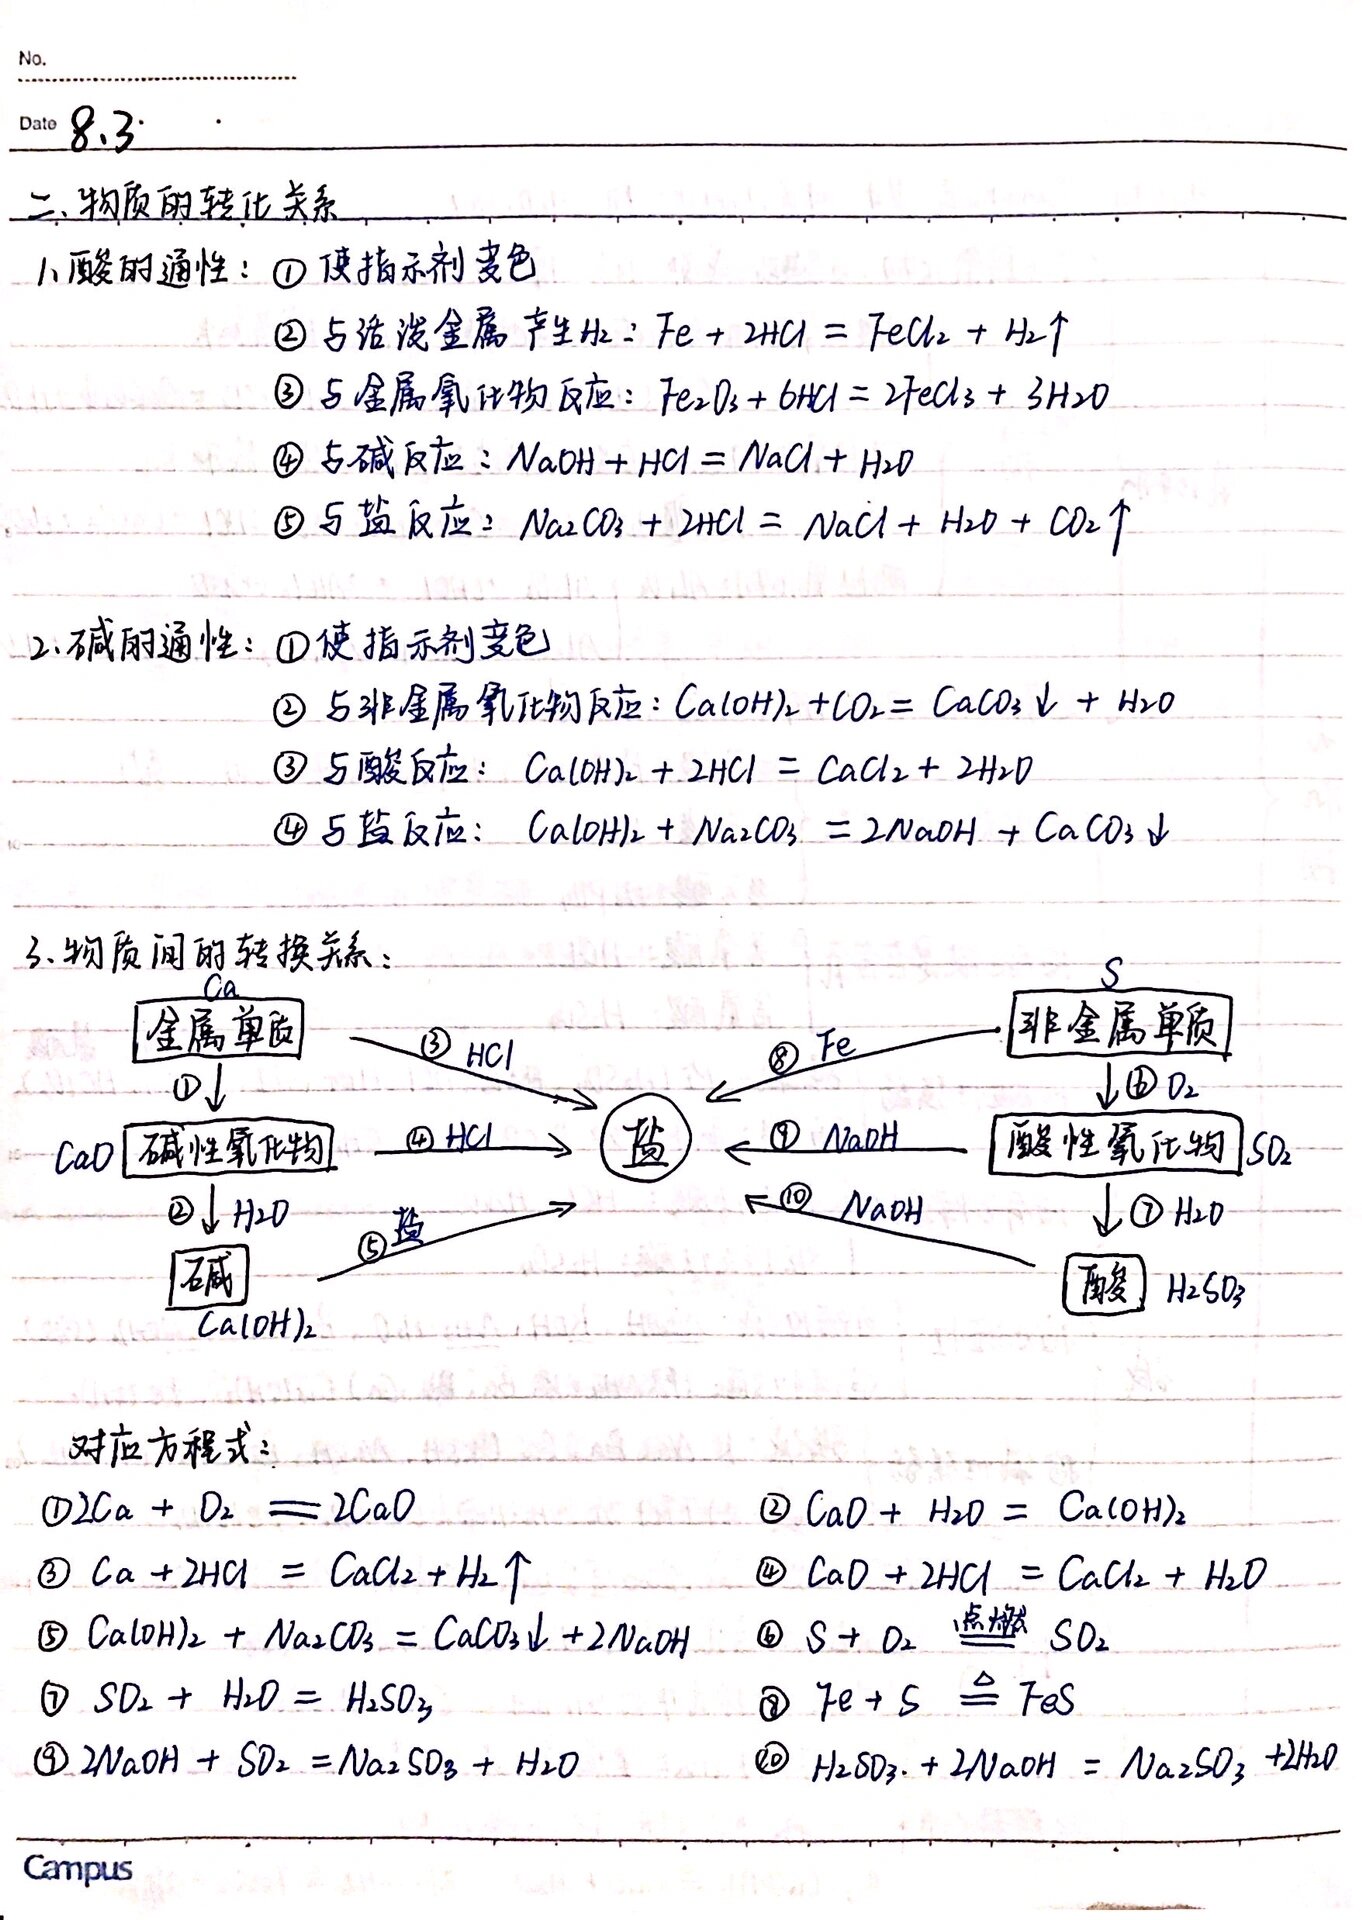 No.
Date 8.3
二、物质的转化关系
1、酸的通性：① 使指示剂变色
② 与活泼金属产生H₂：Fe + 2HCl = FeCl₂ + H₂↑
③ 与金属氧化物反应：Fe₂O₃ + 6HCl = 2FeCl₃ + 3H₂O
④ 与碱反应：NaOH + HCl = NaCl + H₂O
⑤ 与盐反应：Na₂CO₃ + 2HCl = NaCl + H₂O + CO₂↑
2、碱的通性：① 使指示剂变色
② 与非金属氧化物反应：Ca(OH)₂ + CO₂ = CaCO₃↓ + H₂O
③ 与酸反应：Ca(OH)₂ + 2HCl = CaCl₂ + 2H₂O
④ 与盐反应：Ca(OH)₂ + Na₂CO₃ = 2NaOH + CaCO₃↓
3、物质间的转换关系：
Ca
S
金属单质
③ HCl
⑧ Fe
非金属单质
①
⑥ O₂
CaO 碱性氧化物
④ HCl
盐
⑨ NaOH
酸性氧化物 SO₂
② H₂O
⑤ 盐
⑩ NaOH
⑦ H₂O
碱
酸 H₂SO₃
Ca(OH)₂
对应方程式：
① 2Ca + O₂ = 2CaO
② CaO + H₂O = Ca(OH)₂
③ Ca + 2HCl = CaCl₂ + H₂↑
④ CaO + 2HCl = CaCl₂ + H₂O
⑤ Ca(OH)₂ + Na₂CO₃ = CaCO₃↓ + 2NaOH
⑥ S + O₂ 点燃 = SO₂
⑦ SO₂ + H₂O = H₂SO₃
⑧ Fe + S △ = FeS
⑨ 2NaOH + SO₂ = Na₂SO₃ + H₂O
⑩ H₂SO₃ + 2NaOH = Na₂SO₃ + 2H₂O
Campus